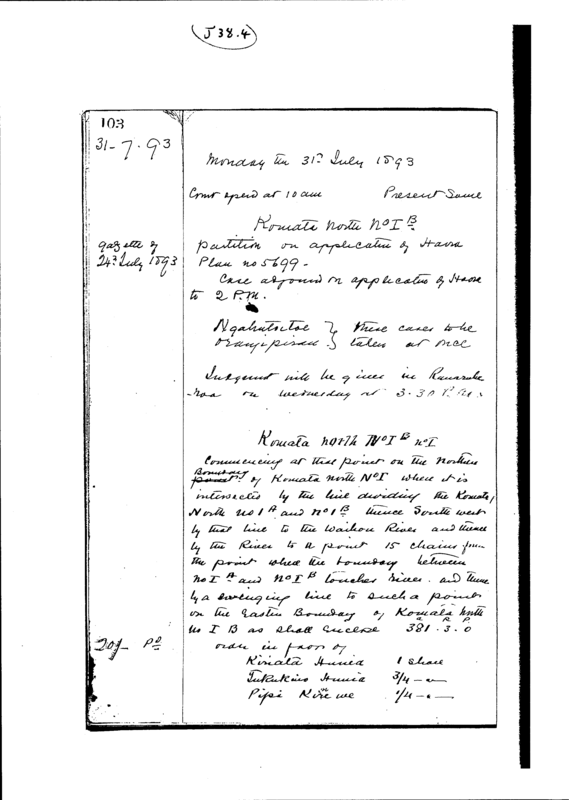 J 38.4
103
31-7.93
Monday the 31st July 1893
Court opend at 10 am Present Same
Komata North No I B
gazette of
24th July 1893
partition on application of Haora
Plan no 5699 -
Case adjourned on application of Haora
to 2 P.M.
these cases to be
taken at once
Judgment will be given in
on Wednesday at 3.30 P.M.
Komata North No I B no I
Commencing at that point on the Northern
Boundary
point of Komata North No I where it is
intersected by the line dividing the Komata
North no 1 A and no 1 B thence South west
by that line to the Waihou River and thence
by the River to a point 15 chains from
the point where the boundary between
no I A and no I B touches River. and thence
by a swinging line to such a point
on the Eastern Boundary of Komata North
a r p
no I B as shall enclose 381.3.0
20/- Pd
order in favor of
Kiriata Hunia 1 share
Tukukino Hunia 3/4 - " -
Pipi 1/4 - " -